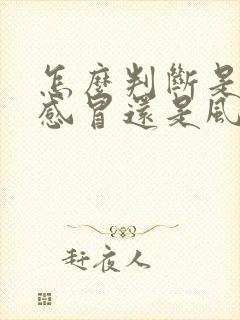 怎麼判斷是
感冒還是風
赶夜人